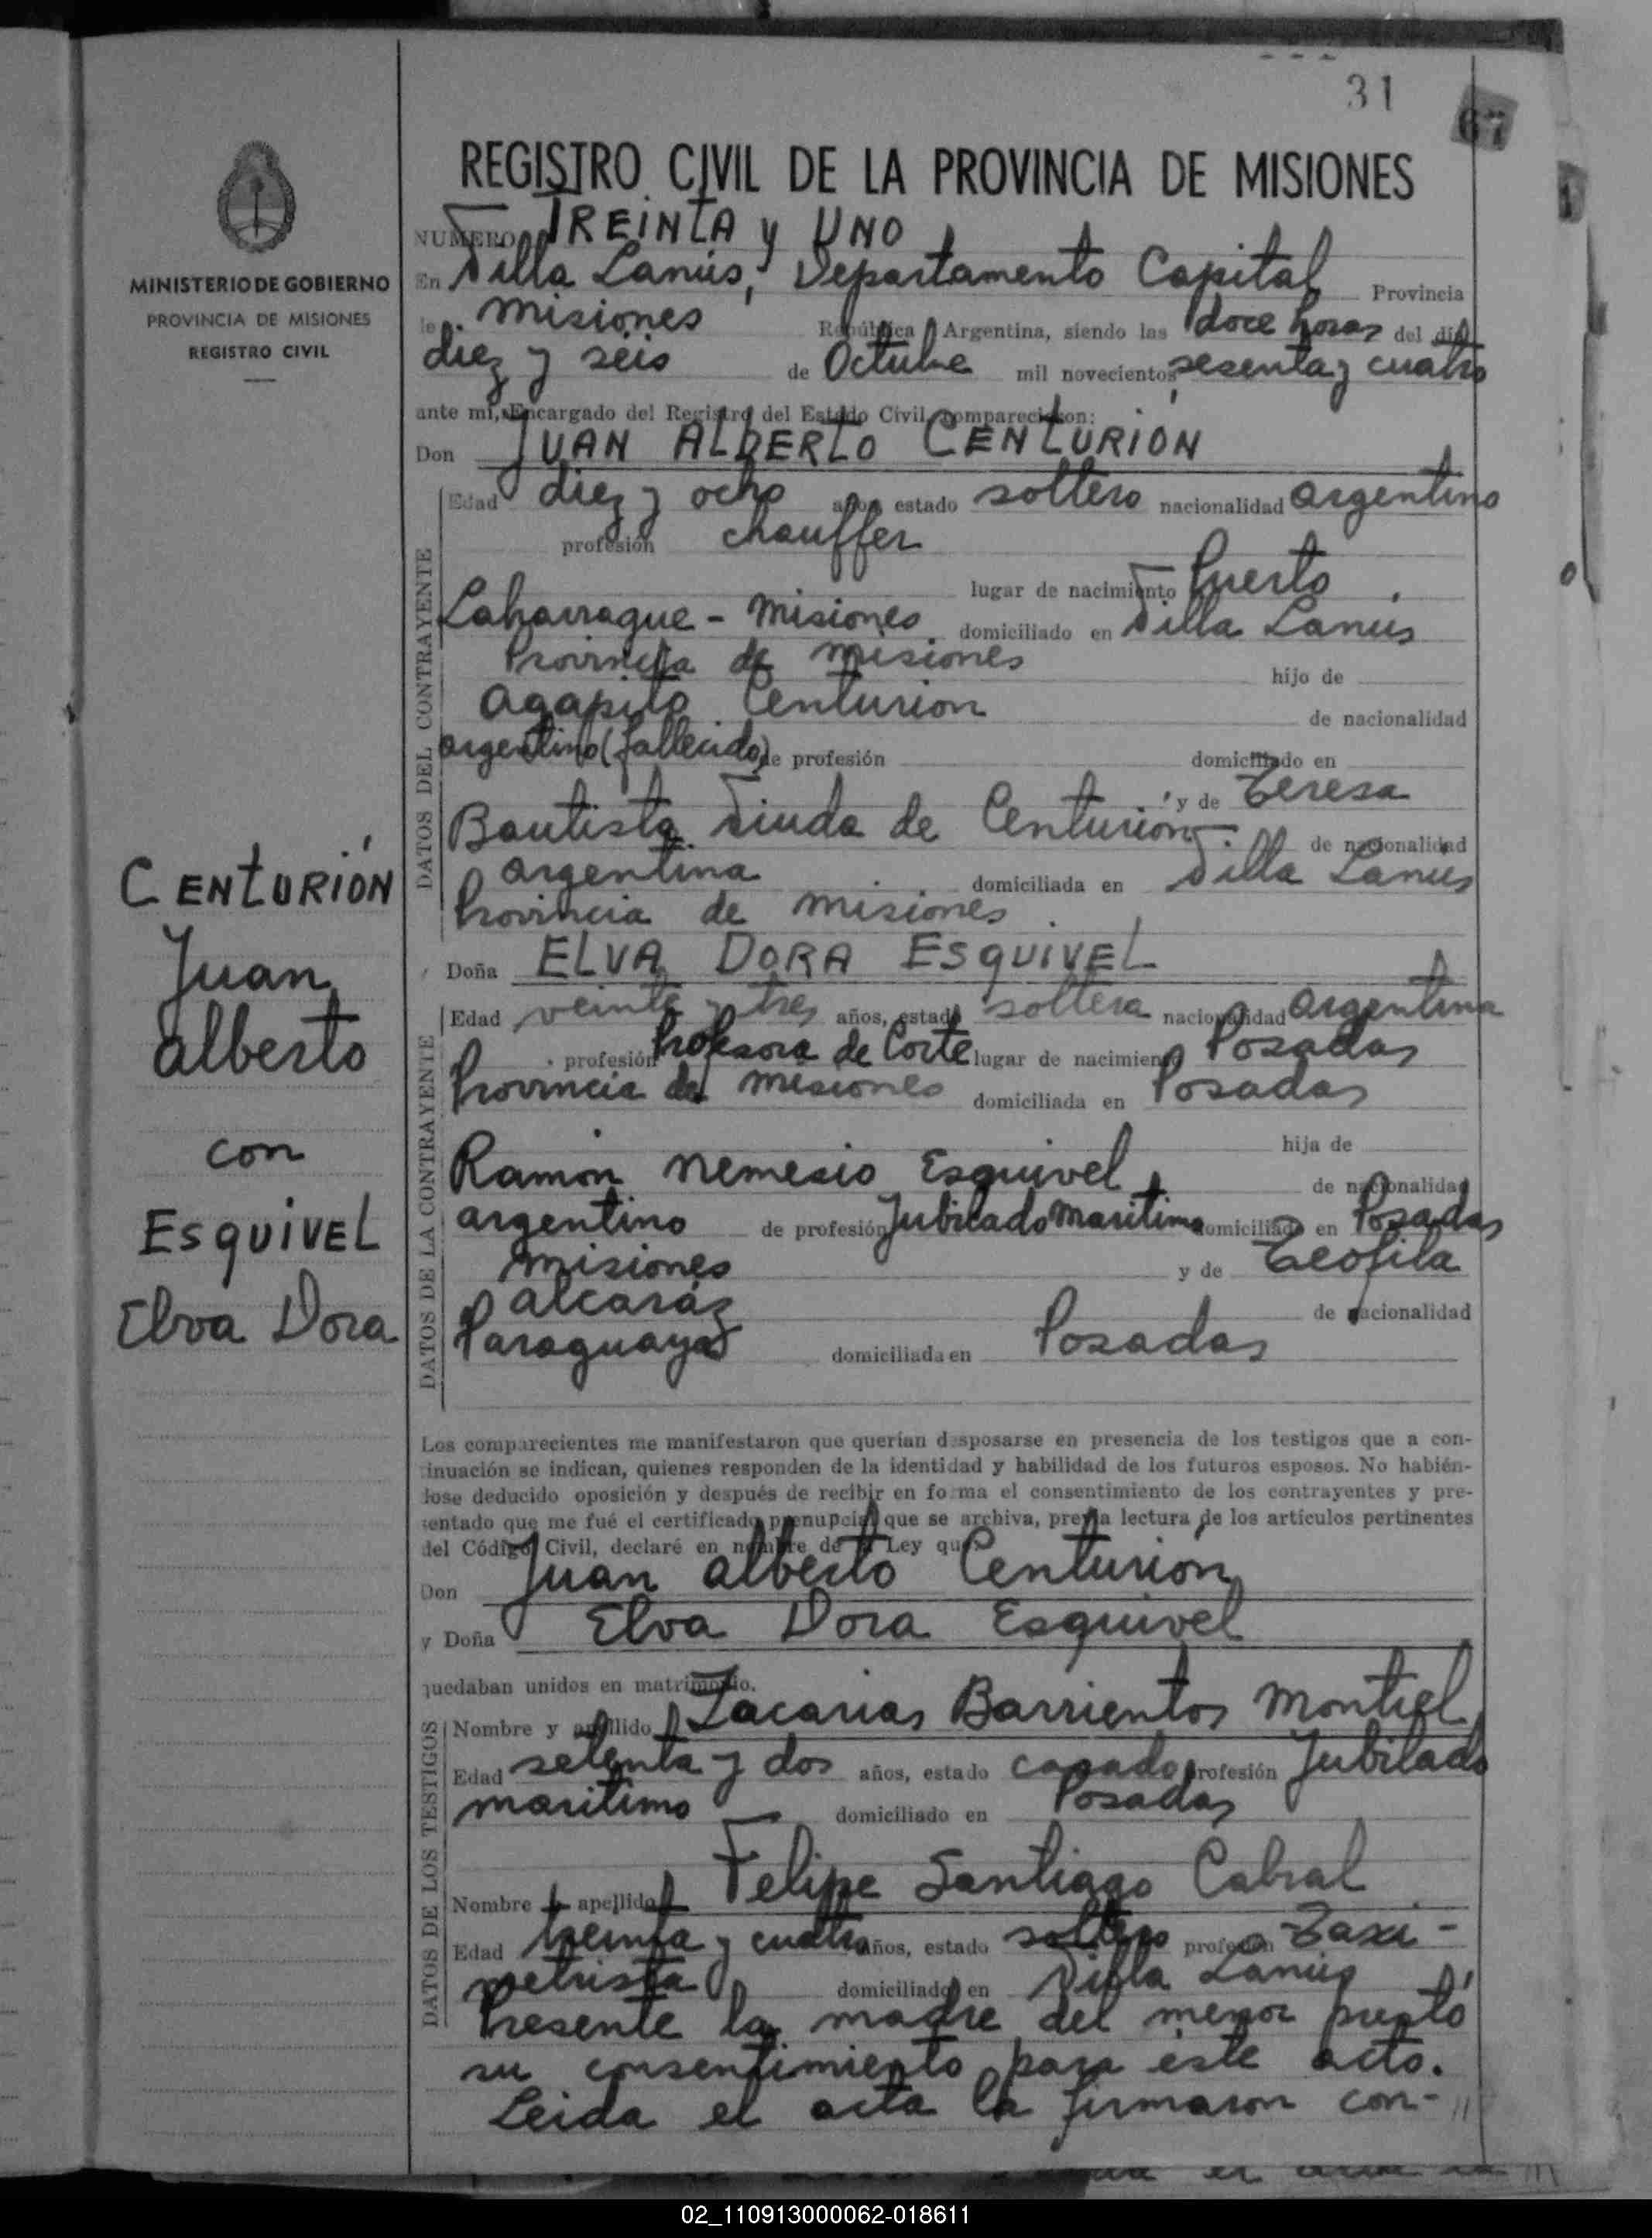 31
67
REGISTRO CIVIL DE LA PROVINCIA DE MISIONES
MINISTERIO DE GOBIERNO
PROVINCIA DE MISIONES
REGISTRO CIVIL
NUMERO TREINTA y UNO
En Villa Lanús, Departamento Capital Provincia
de Misiones República Argentina, siendo las doce horas del día
diez y seis de Octubre mil novecientos sesenta y cuatro
ante mí, Encargado del Registro del Estado Civil, comparecieron:
Don JUAN ALBERTO CENTURIÓN
DATOS DEL CONTRAYENTE
Edad diez y ocho años estado soltero nacionalidad argentino
profesión chauffer
lugar de nacimiento Puerto
Laharrague - Misiones domiciliado en Villa Lanús
Provincia de Misiones hijo de
Agapito Centurion de nacionalidad
argentino (fallecido) de profesión domiciliado en
y de Teresa
Bautista Viuda de Centurión de nacionalidad
argentina domiciliada en Villa Lanús
Provincia de Misiones
CENTURIÓN
Juan
Alberto
con
ESQUIVEL
Elva Dora
Doña ELVA DORA ESQUIVEL
DATOS DE LA CONTRAYENTE
Edad veinte y tres años, estado soltera nacionalidad Argentina
profesión Profesora de Corte lugar de nacimiento Posadas
Provincia de Misiones domiciliada en Posadas
hija de
Ramón Nemesio Esquivel de nacionalidad
argentino de profesión Jubilado Marítimo domiciliado en Posadas
Misiones y de Teofila
Alcaráz de nacionalidad
Paraguaya domiciliada en Posadas
Los comparecientes me manifestaron que querían desposarse en presencia de los testigos que a con-
tinuación se indican, quienes responden de la identidad y habilidad de los futuros esposos. No habién-
dose deducido oposición y después de recibir en forma el consentimiento de los contrayentes y pre-
sentado que me fué el certificado prenupcial que se archiva, previa lectura de los artículos pertinentes
del Código Civil, declaré en nombre de la Ley que
Don Juan Alberto Centurión
y Doña Elva Dora Esquivel
quedaban unidos en matrimonio.
DATOS DE LOS TESTIGOS
Nombre y apellido Zacarias Barrientos Montiel
Edad setenta y dos años, estado casado profesión Jubilado
marítimo domiciliado en Posadas
Nombre y apellido Felipe Santiago Cabral
Edad treinta y cuatro años, estado soltero profesión Taxi-
metrista domiciliado en Villa Lanús
Presente la madre del menor prestó
su consentimiento para este acto.
Leida el acta la firmaron con-//
02_110913000062-018611